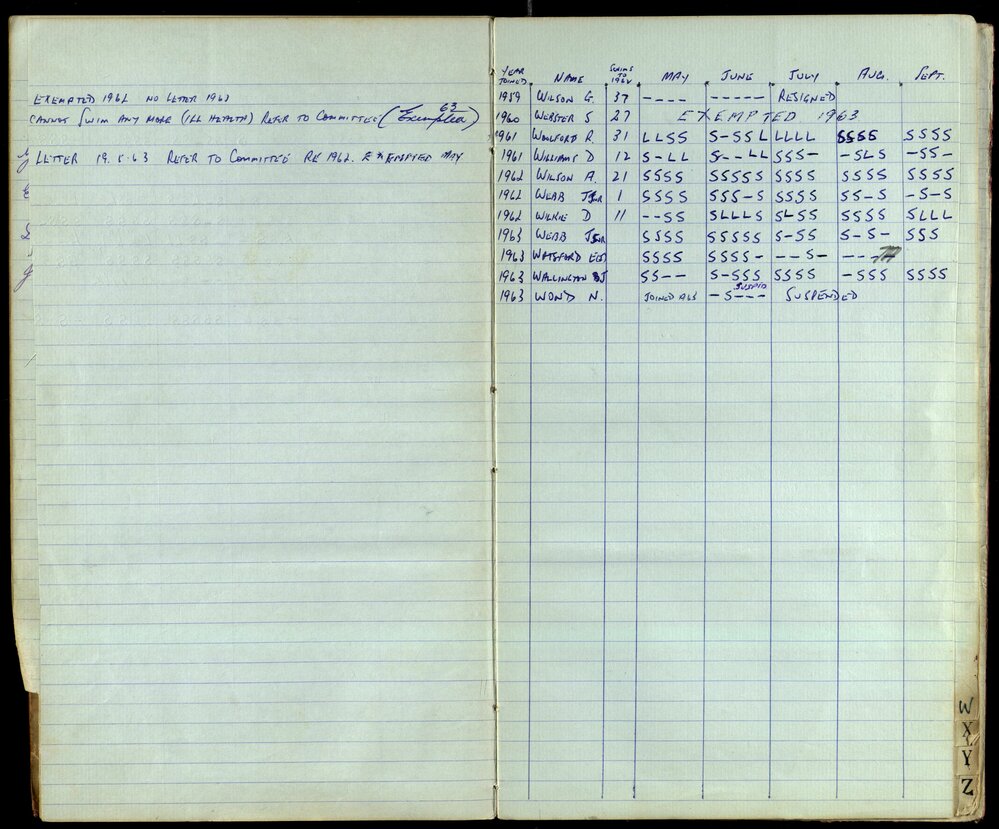 EXEMPTED 1962 NO LETTER 1963
CANNOT SWIM ANY MORE (ILL HEALTH) REFER TO COMMITTEE (Exempted 63)
LETTER 19.5.63 REFER TO COMMITTEE RE 1962. EXEMPTED MAY
YEAR JOINED NAME SWIMS TO 1962 MAY JUNE JULY AUG. SEPT.
1959 WILSON G. 37 ---- ----- RESIGNED
1960 WEBSTER S 27 EXEMPTED 1963
1961 WOOLFORD R. 31 LLSS S-SSL LLLL SSSS SSSS
1961 WILLIAMS D 12 S-LL S--LL SSS- -SLS -SS-
1962 WILSON A. 21 SSSS SSSSS SSSS SSSS SSSS
1962 WEBB JNR 1 SSSS SSS-S SSSS SS-S -S-S
1962 WILKIE D 11 --SS SLLLS SLSS SSSS SLLL
1963 WEBB JSNR SSSS SSSSS S-SS S-S- SSS
1963 WATSFORD SSSS SSSS- --S- ---
1963 WALLINGTON SS-- S-SSS SSSS -SSS SSSS
1963 WOND N. JOINED -S--- SUSP'D SUSPENDED
W
X
Y
Z